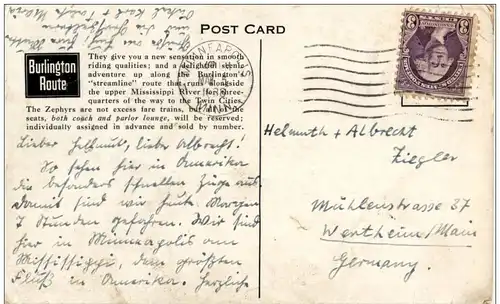 POST CARD
Burlington
Route
They give you a new sensation in smooth
riding qualities; and a delightful scenic
adventure up along the Burlington's
"streamline" route that runs alongside
the upper Mississippi River for three-
quarters of the way to the Twin Cities.
The Zephyrs are not excess fare trains, but all of the
seats, both coach and parlor lounge, will be reserved;
individually assigned in advance and sold by number.
MINNEAPOLIS
MINN.
3
Lieber Hellmut, lieber Albrecht!
So sehen hier in Amerika
die besonders schnellen Züge aus.
Damit sind wir heute Morgen
7 Stunden gefahren. Wir sind
hier in Minneapolis am
Mississippi, dem größten
Fluß in Amerika. Herzliche
Helmuth + Albrecht
Ziegler
Mühlenstrasse 37
Wertheim/Main
Germany.